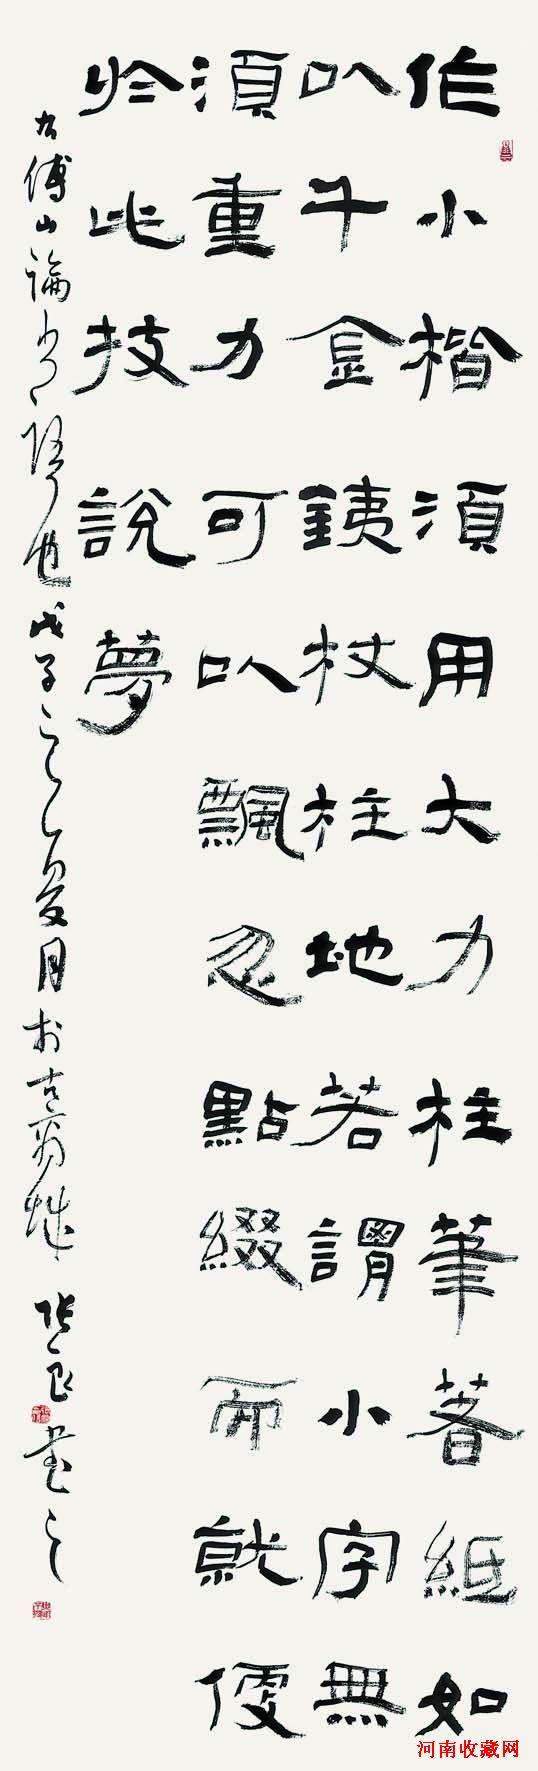 作小楷須用大力柱筆著紙如
以千金銕杖柱地若謂小字無
須重力可以飄忽點綴而就便
於此技說夢
右傅山論書語也戊子之夏月於古商城
書之
河南收藏网